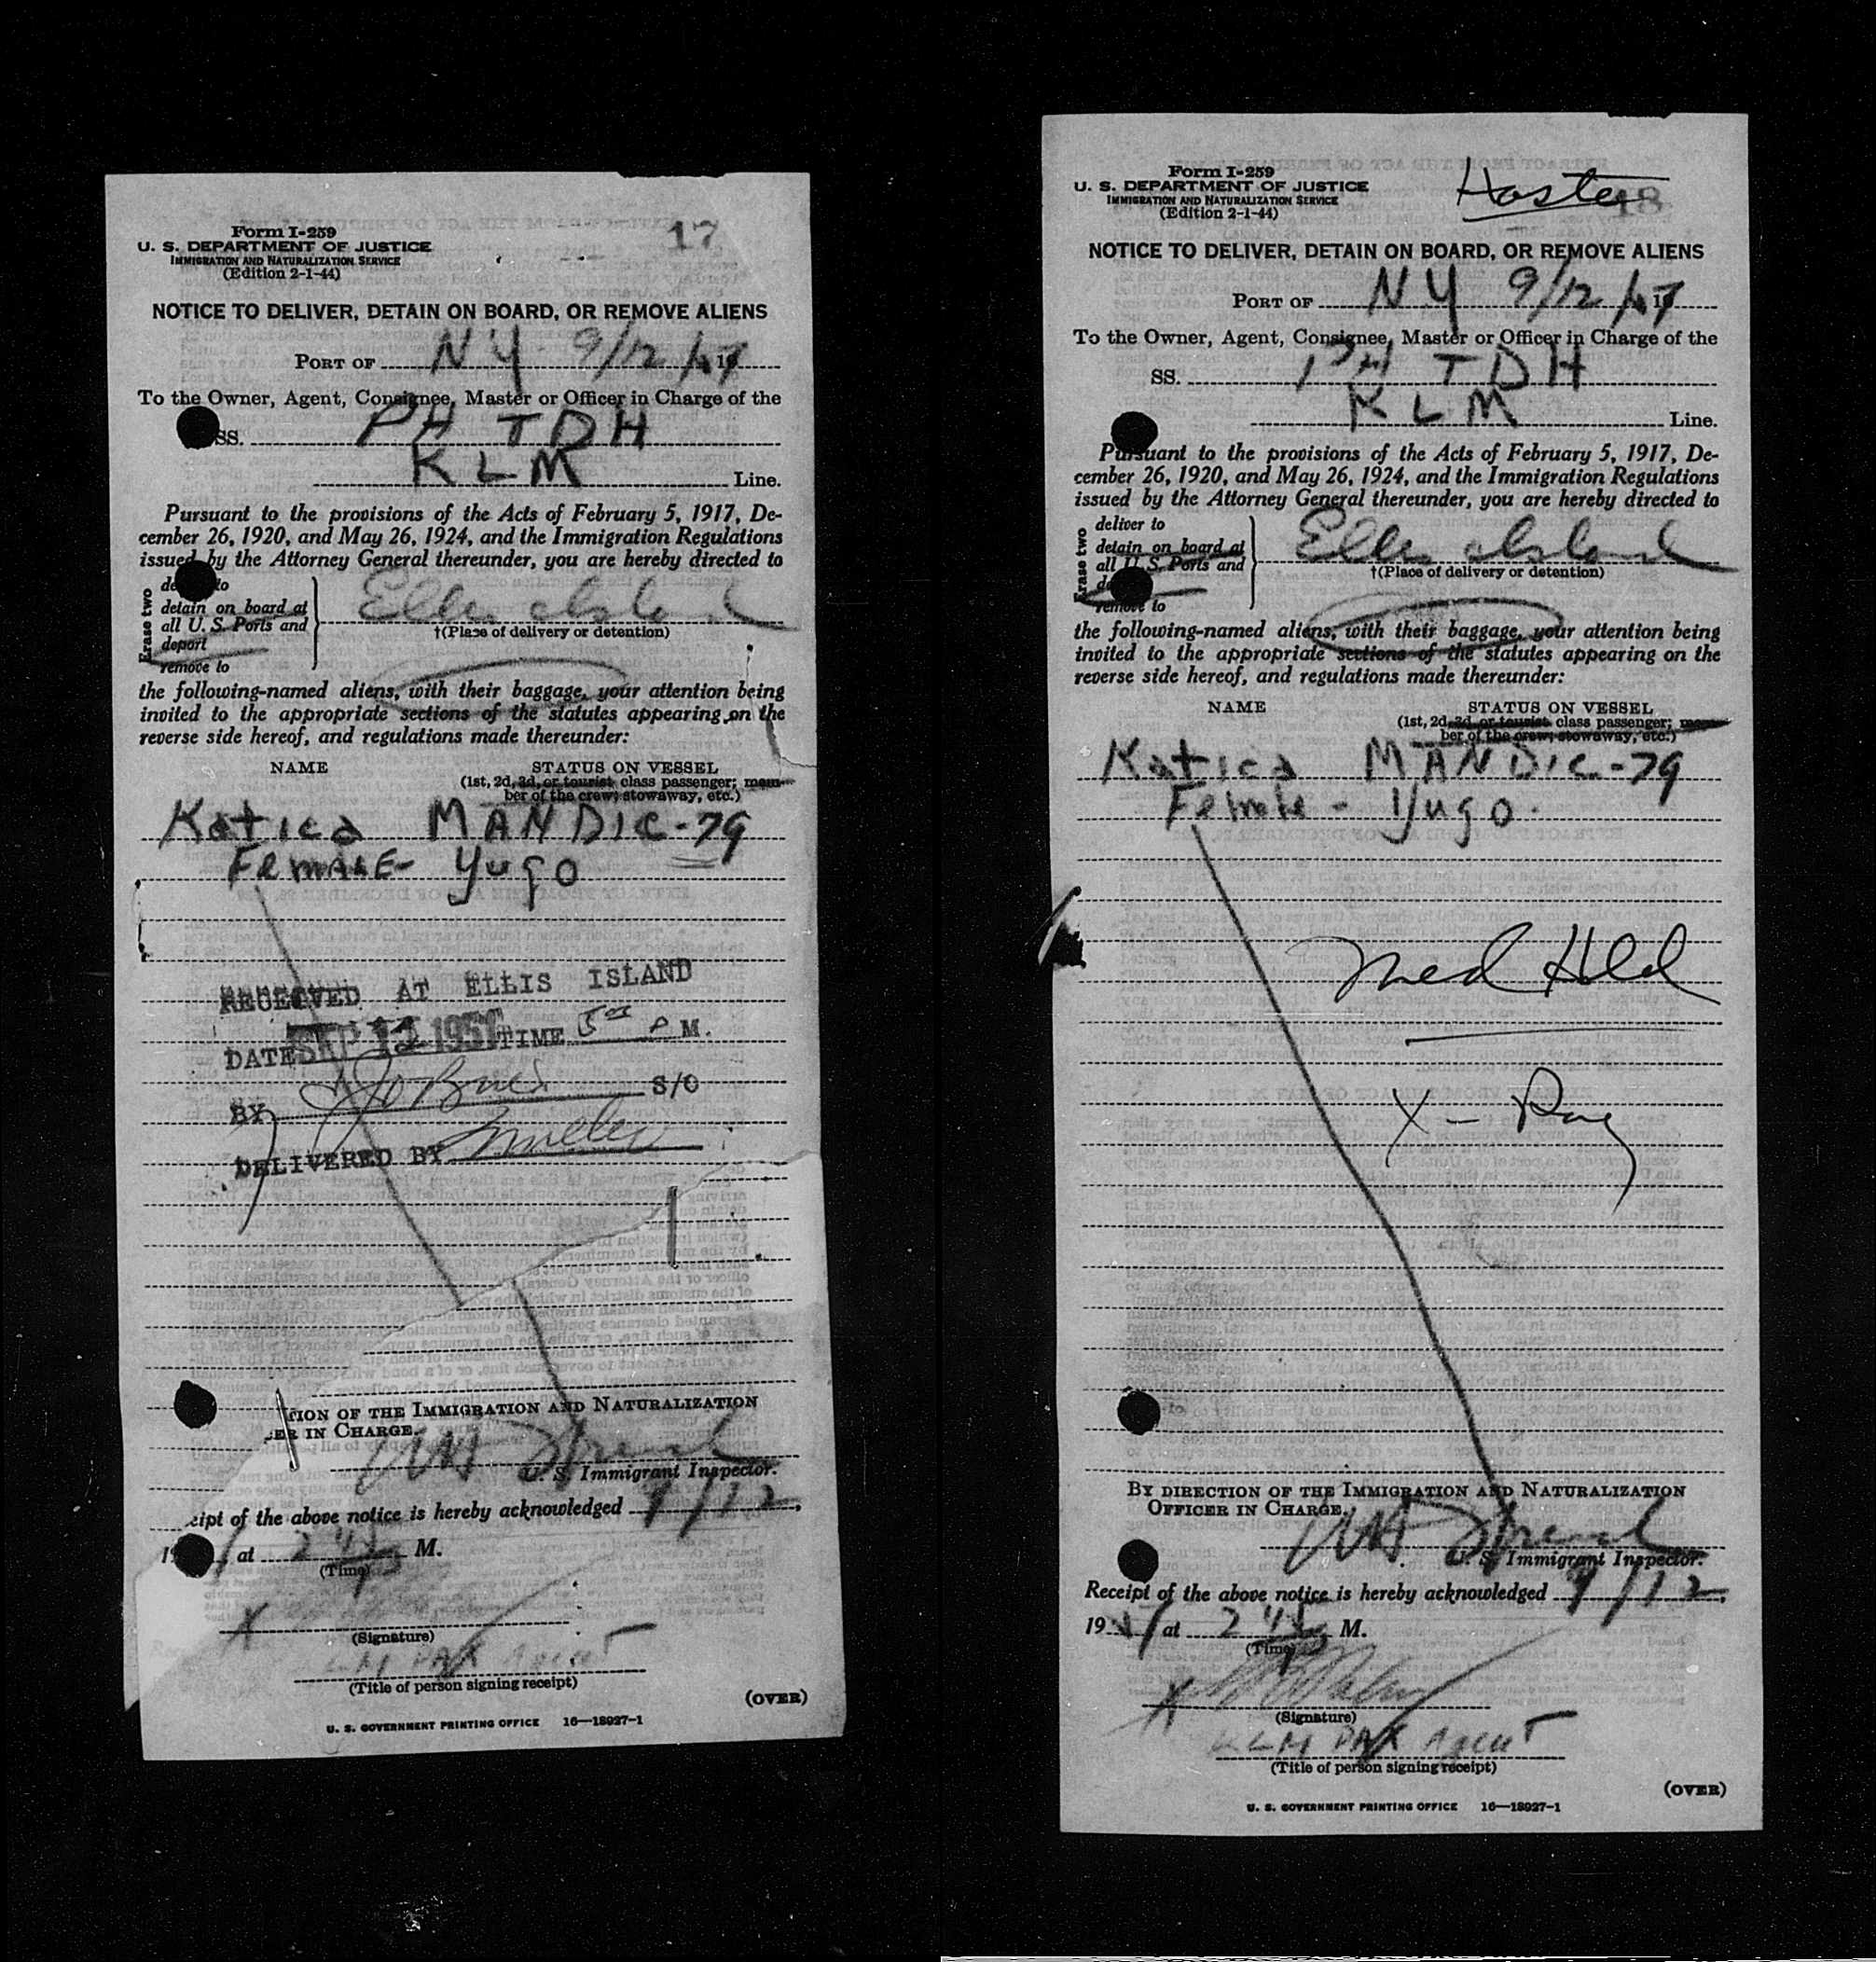 17
Form I-259
U. S. DEPARTMENT OF JUSTICE
IMMIGRATION AND NATURALIZATION SERVICE
(Edition 2-1-44)
NOTICE TO DELIVER, DETAIN ON BOARD, OR REMOVE ALIENS
PORT OF NY 9/12/
To the Owner, Agent, Consignee, Master or Officer in Charge of the
SS. PH TDH
KLM Line.
Pursuant to the provisions of the Acts of February 5, 1917, De-
cember 26, 1920, and May 26, 1924, and the Immigration Regulations
issued by the Attorney General thereunder, you are hereby directed to
Erase two
to
detain on board at
all U. S. Ports and
deport
remove to
Ellis Island
†(Place of delivery or detention)
the following-named aliens, with their baggage, your attention being
invited to the appropriate sections of the statutes appearing on the
reverse side hereof, and regulations made thereunder:
NAME STATUS ON VESSEL
(1st, 2d, 3d, or tourist class passenger; mem-
ber of the crew; stowaway, etc.)
Katica MANDIC-79
FEMALE- Yugo
RECEIVED AT ELLIS ISLAND
DATE SEP 12 1951 TIME 5 P M.
BY S/O
DELIVERED BY
TION OF THE IMMIGRATION AND NATURALIZATION
ER IN CHARGE.
U. S. Immigrant Inspector.
eipt of the above notice is hereby acknowledged 9/12,
at 245 M.
(Time)
X
(Signature)
KLM PAX Agent
(Title of person signing receipt)
(OVER)
U. S. GOVERNMENT PRINTING OFFICE 16—18927-1
18
Form I-259
U. S. DEPARTMENT OF JUSTICE
IMMIGRATION AND NATURALIZATION SERVICE
(Edition 2-1-44)
NOTICE TO DELIVER, DETAIN ON BOARD, OR REMOVE ALIENS
PORT OF NY 9/12/
To the Owner, Agent, Consignee, Master or Officer in Charge of the
SS. PH TDH
KLM Line.
Pursuant to the provisions of the Acts of February 5, 1917, De-
cember 26, 1920, and May 26, 1924, and the Immigration Regulations
issued by the Attorney General thereunder, you are hereby directed to
Erase two
deliver to
detain on board at
all U. S. Ports and
remove to
Ellis Island
†(Place of delivery or detention)
the following-named aliens, with their baggage, your attention being
invited to the appropriate sections of the statutes appearing on the
reverse side hereof, and regulations made thereunder:
NAME STATUS ON VESSEL
(1st, 2d, 3d, or tourist class passenger; mem-
ber of the crew; stowaway, etc.)
Katica MANDIC-79
Female - Yugo.
Med Hld
X-Ray
BY DIRECTION OF THE IMMIGRATION AND NATURALIZATION
OFFICER IN CHARGE.
U. S. Immigrant Inspector.
Receipt of the above notice is hereby acknowledged 9/12,
19 at 245 M.
(Time)
X
(Signature)
KLM PAX Agent
(Title of person signing receipt)
(OVER)
U. S. GOVERNMENT PRINTING OFFICE 16—18927-1